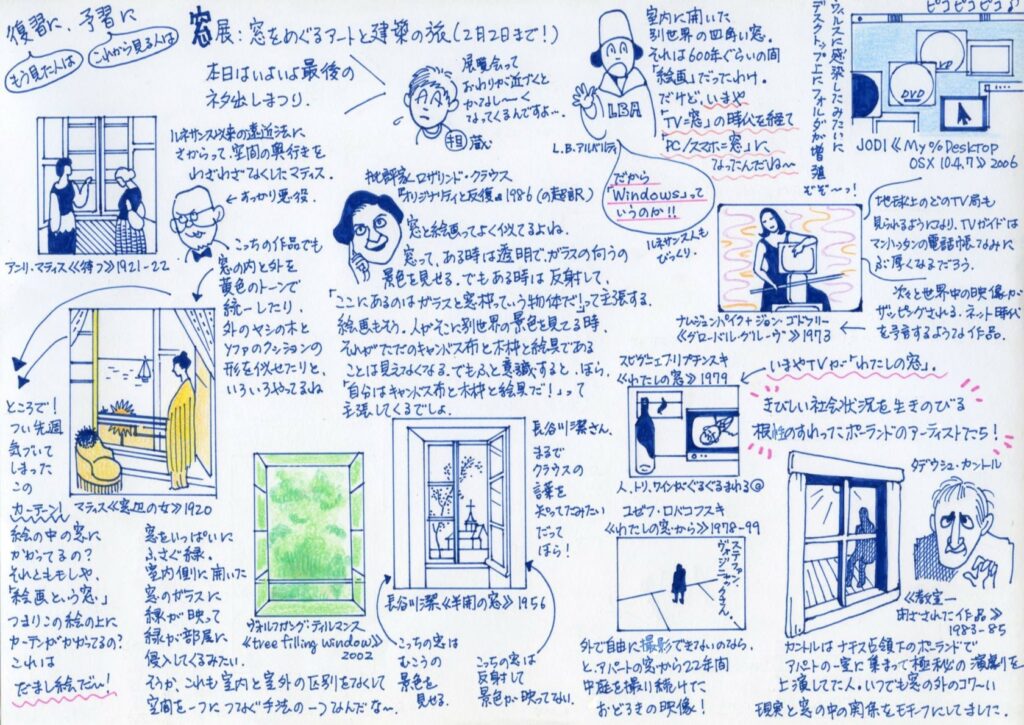 復習に、予習に
もう見た人は
これから見る人は
窓展：窓をめぐるアートと建築の旅(2月2日まで!)
本日はいよいよ最後の
ネタ出しまつり.
展覧会って
おわりが近づくと
かなし〜く
なってくるんですよ…
担 蔵
室内に開いた
別世界の四角い窓。
それは600年ぐらいの間
「絵画」だったわけ。
だけど、いまや
「TV=窓」の時代を経て
「PC/スマホ=窓」に
なったんだね〜
LBA
L.B.アルベルティ
だから
「Windows」って
いうのか!!
ルネサンス人も
びっくり.
ウィルスに感染したみたいに
デスクトップ上にフォルダが増殖
むぞ〜っ!
ピコピコピコ♪
DVD
JODI《My%Desktop
OSX 10.4.7》2006
ルネサンス以来の遠近法に
さからって、空間の奥行きを
わざわざなくしたマティス。
すっかり悪役.
アンリ・マティス《待つ》1921-22
こっちの作品でも
窓の内と外を
黄色のトーンで
統一したり、
外のヤシの木と
ソファのクッションの
形を似せたりと、
いろいろやってるね
批評家、ロザリンド・クラウス
『オリジナリティと反復』1986(の超訳)
窓と絵画ってよく似てるよね。
窓って、ある時は透明で、ガラスの向うの
景色を見せる。でもある時は反射して、
「ここにあるのはガラスと窓枠っていう物体だ!」って主張する.
絵画もそう。人がそこに別世界の景色を見てる時、
それがただのキャンバス布と木枠と絵具である
ことは見えなくなる。でもふと意識すると、ほら、
「自分はキャンバス布と木枠と絵具だ!」って
主張してくるでしょ。
地球上のどのTV局も
見られるようになり、TVガイドは
マンハッタンの電話帳なみに
ぶ厚くなるだろう.
次々と世界中の映像が
ザッピングされる、ネット時代
を予言するような作品.
ナムジュン・パイク+ジョン・ゴドフリー
《グローバル・グルーヴ》1973
ズビグニェフ・リプチンスキ
《わたしの窓》1979
いまやTVが「わたしの窓」.
人、トリ、ワインがぐるぐるまわる@
きびしい社会状況を生きのびる
根性のすわったポーランドのアーティストたち!
ところで!
つい先週
気づいて
しまった
この
カーテン!
絵の中の窓に
かかってるの?
それとももしや、
「絵画という窓」
つまりこの絵の上に
カーテンがかかってる?
これは
だまし絵だ〜!
マティス《窓辺の女》1920
窓をいっぱいに
ふさぐ緑.
室内側に開いた
窓のガラスに
緑が映って
緑が部屋に
侵入してくるみたい.
そうか、これも室内と室外の区別をなくして
空間を一つにつなぐ手法の一つなんだな〜
ヴォルフガング・ティルマンス
《tree filling window》
2002
長谷川潔《半開の窓》1956
長谷川潔さん、
まるで
クラウスの
言葉を
知ってたみたい
だって
ほら!
こっちの窓は
むこうの
景色を
見せる.
こっちの窓は
反射して
景色が映ってない.
ユゼフ・ロバコフスキ
《わたしの窓から》1978-99
外で自由に撮影できないのなら、
と、アパートの窓から22年間
中庭を撮り続けた
おどろきの映像!
タデウシュ・カントル
《教室ー
閉ざされた作品》
1983-85
カントルはナチス占領下のポーランドで
アパートの一室に集まって極秘の演劇を
上演してた人。いつでも窓の外のコワ〜い
現実と窓の中の関係をモチーフにしてました.